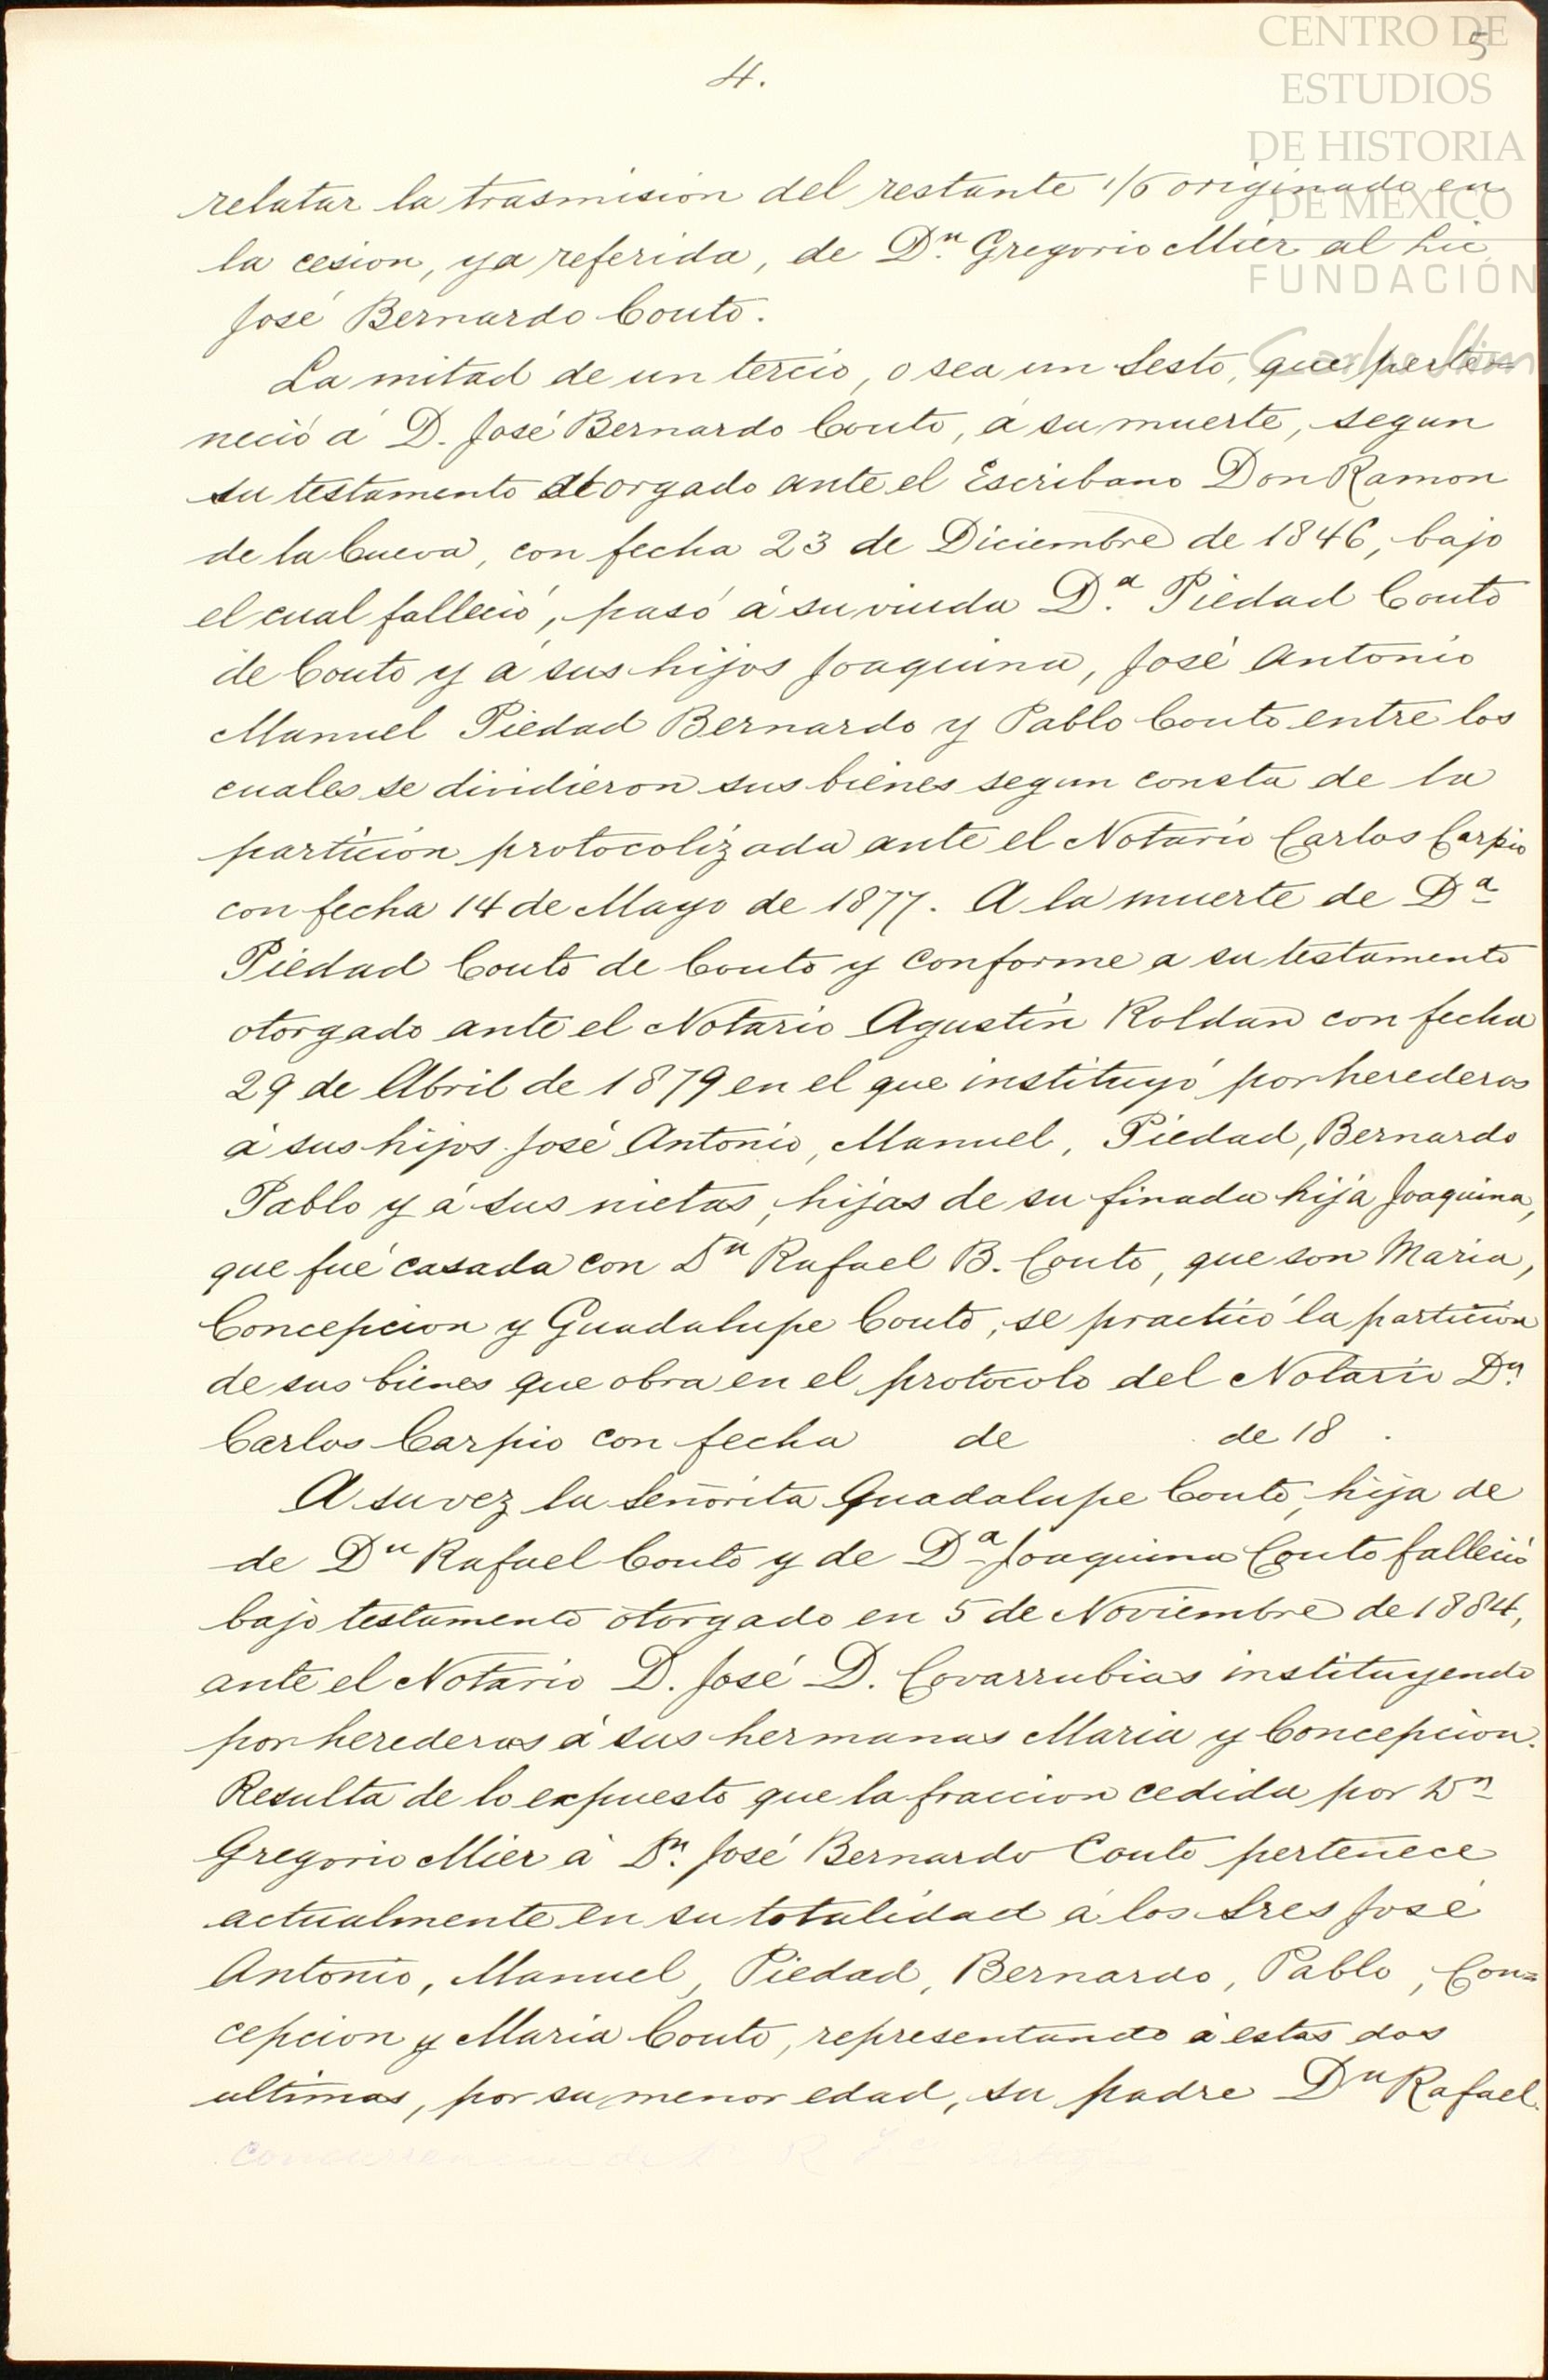 CENTRO DE
ESTUDIOS
DE HISTORIA
DE MÉXICO
FUNDACIÓN
Carlos Slim
5
4.
relatar la trasmision del restante 1/6 originado en
la cesion, ya referida, de Dn. Gregorio Mier al Lic
José Bernardo Couto.
La mitad de un tercio, o sea un Sesto, que perte-
neció á D. José Bernardo Couto, á su muerte, segun
su testamento otorgado ante el Escribano Don Ramon
de la Cueva, con fecha 23 de Diciembre de 1846, bajo
el cual falleció, pasó á su viuda Da. Piedad Couto
de Couto y á sus hijos Joaquina, José Antonio
Manuel Piedad Bernardo y Pablo Couto entre los
cuales se dividieron sus bienes segun consta de la
particion protocolizada ante el Notario Carlos Carpio
con fecha 14 de Mayo de 1877. A la muerte de Da
Piedad Couto de Couto y conforme a su testamento
otorgado ante el Notario Agustín Roldan con fecha
29 de Abril de 1879 en el que instituyó por herederos
á sus hijos José Antonio, Manuel, Piedad, Bernardo
Pablo y á sus nietas, hijas de su finada hija Joaquina,
que fué casada con Dn Rafael B. Couto, que son Maria,
Concepcion y Guadalupe Couto, se practicó la particion
de sus bienes que obra en el protocolo del Notario Dn.
Carlos Carpio con fecha de de 18 .
A su vez la Señorita Guadalupe Couto, hija de
de Dn Rafael Couto y de Da Joaquina Couto falleció
bajo testamento otorgado en 5 de Noviembre de 1884,
ante el Notario D. José D. Covarrubias instituyendo
por herederas á sus hermanas Maria y Concepcion.
Resulta de lo expuesto que la fraccion cedida por Dn
Gregorio Mier á Dn. José Bernardo Couto pertenece
actualmente en su totalidad á los Sres José
Antonio, Manuel, Piedad, Bernardo, Pablo, Con=
cepcion y Maria Couto, representando á estas dos
ultimas, por su menor edad, su padre Dn Rafael.